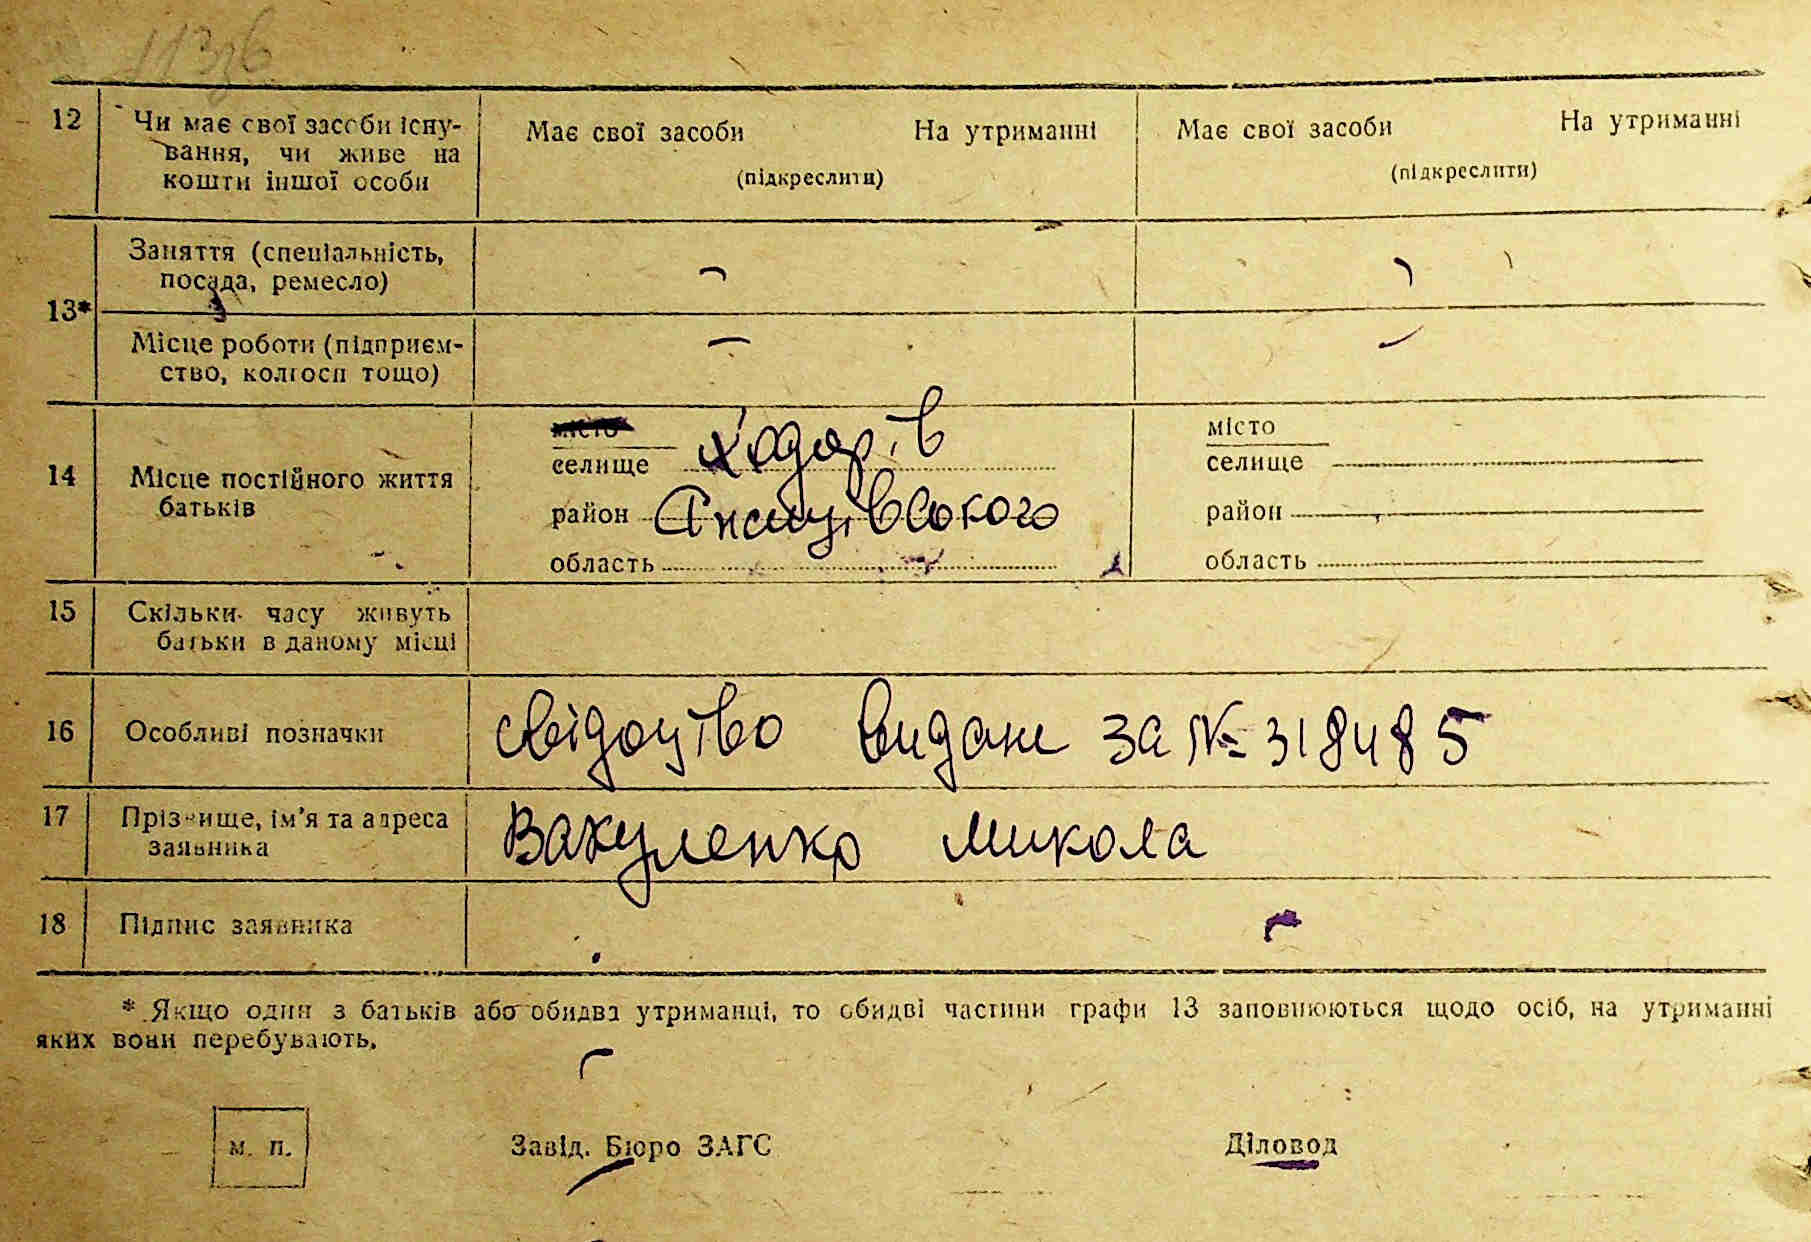 12
Чи має свої засоби існу-
вання, чи живе на
кошти іншої особи
Має свої засоби На утриманні
(підкреслити)
Має свої засоби На утриманні
(підкреслити)
13*
Заняття (спеціальність,
посада, ремесло)
Місце роботи (підприєм-
ство, колгосп тощо)
14
Місце постійного життя
батьків
місто
селище Ходорів
район
область
місто
селище
район
область
15
Скільки часу живуть
батьки в даному місці
16
Особливі позначки
свідоцтво видане за № 318485
17
Прізвище, ім'я та адреса
заявника
Вакуленко Микола
18
Підпис заявника
* Якщо один з батьків або обидва утриманці, то обидві частини графи 13 заповнюються щодо осіб, на утриманні
яких вони перебувають.
м. п.
Завід. Бюро ЗАГС
Діловод